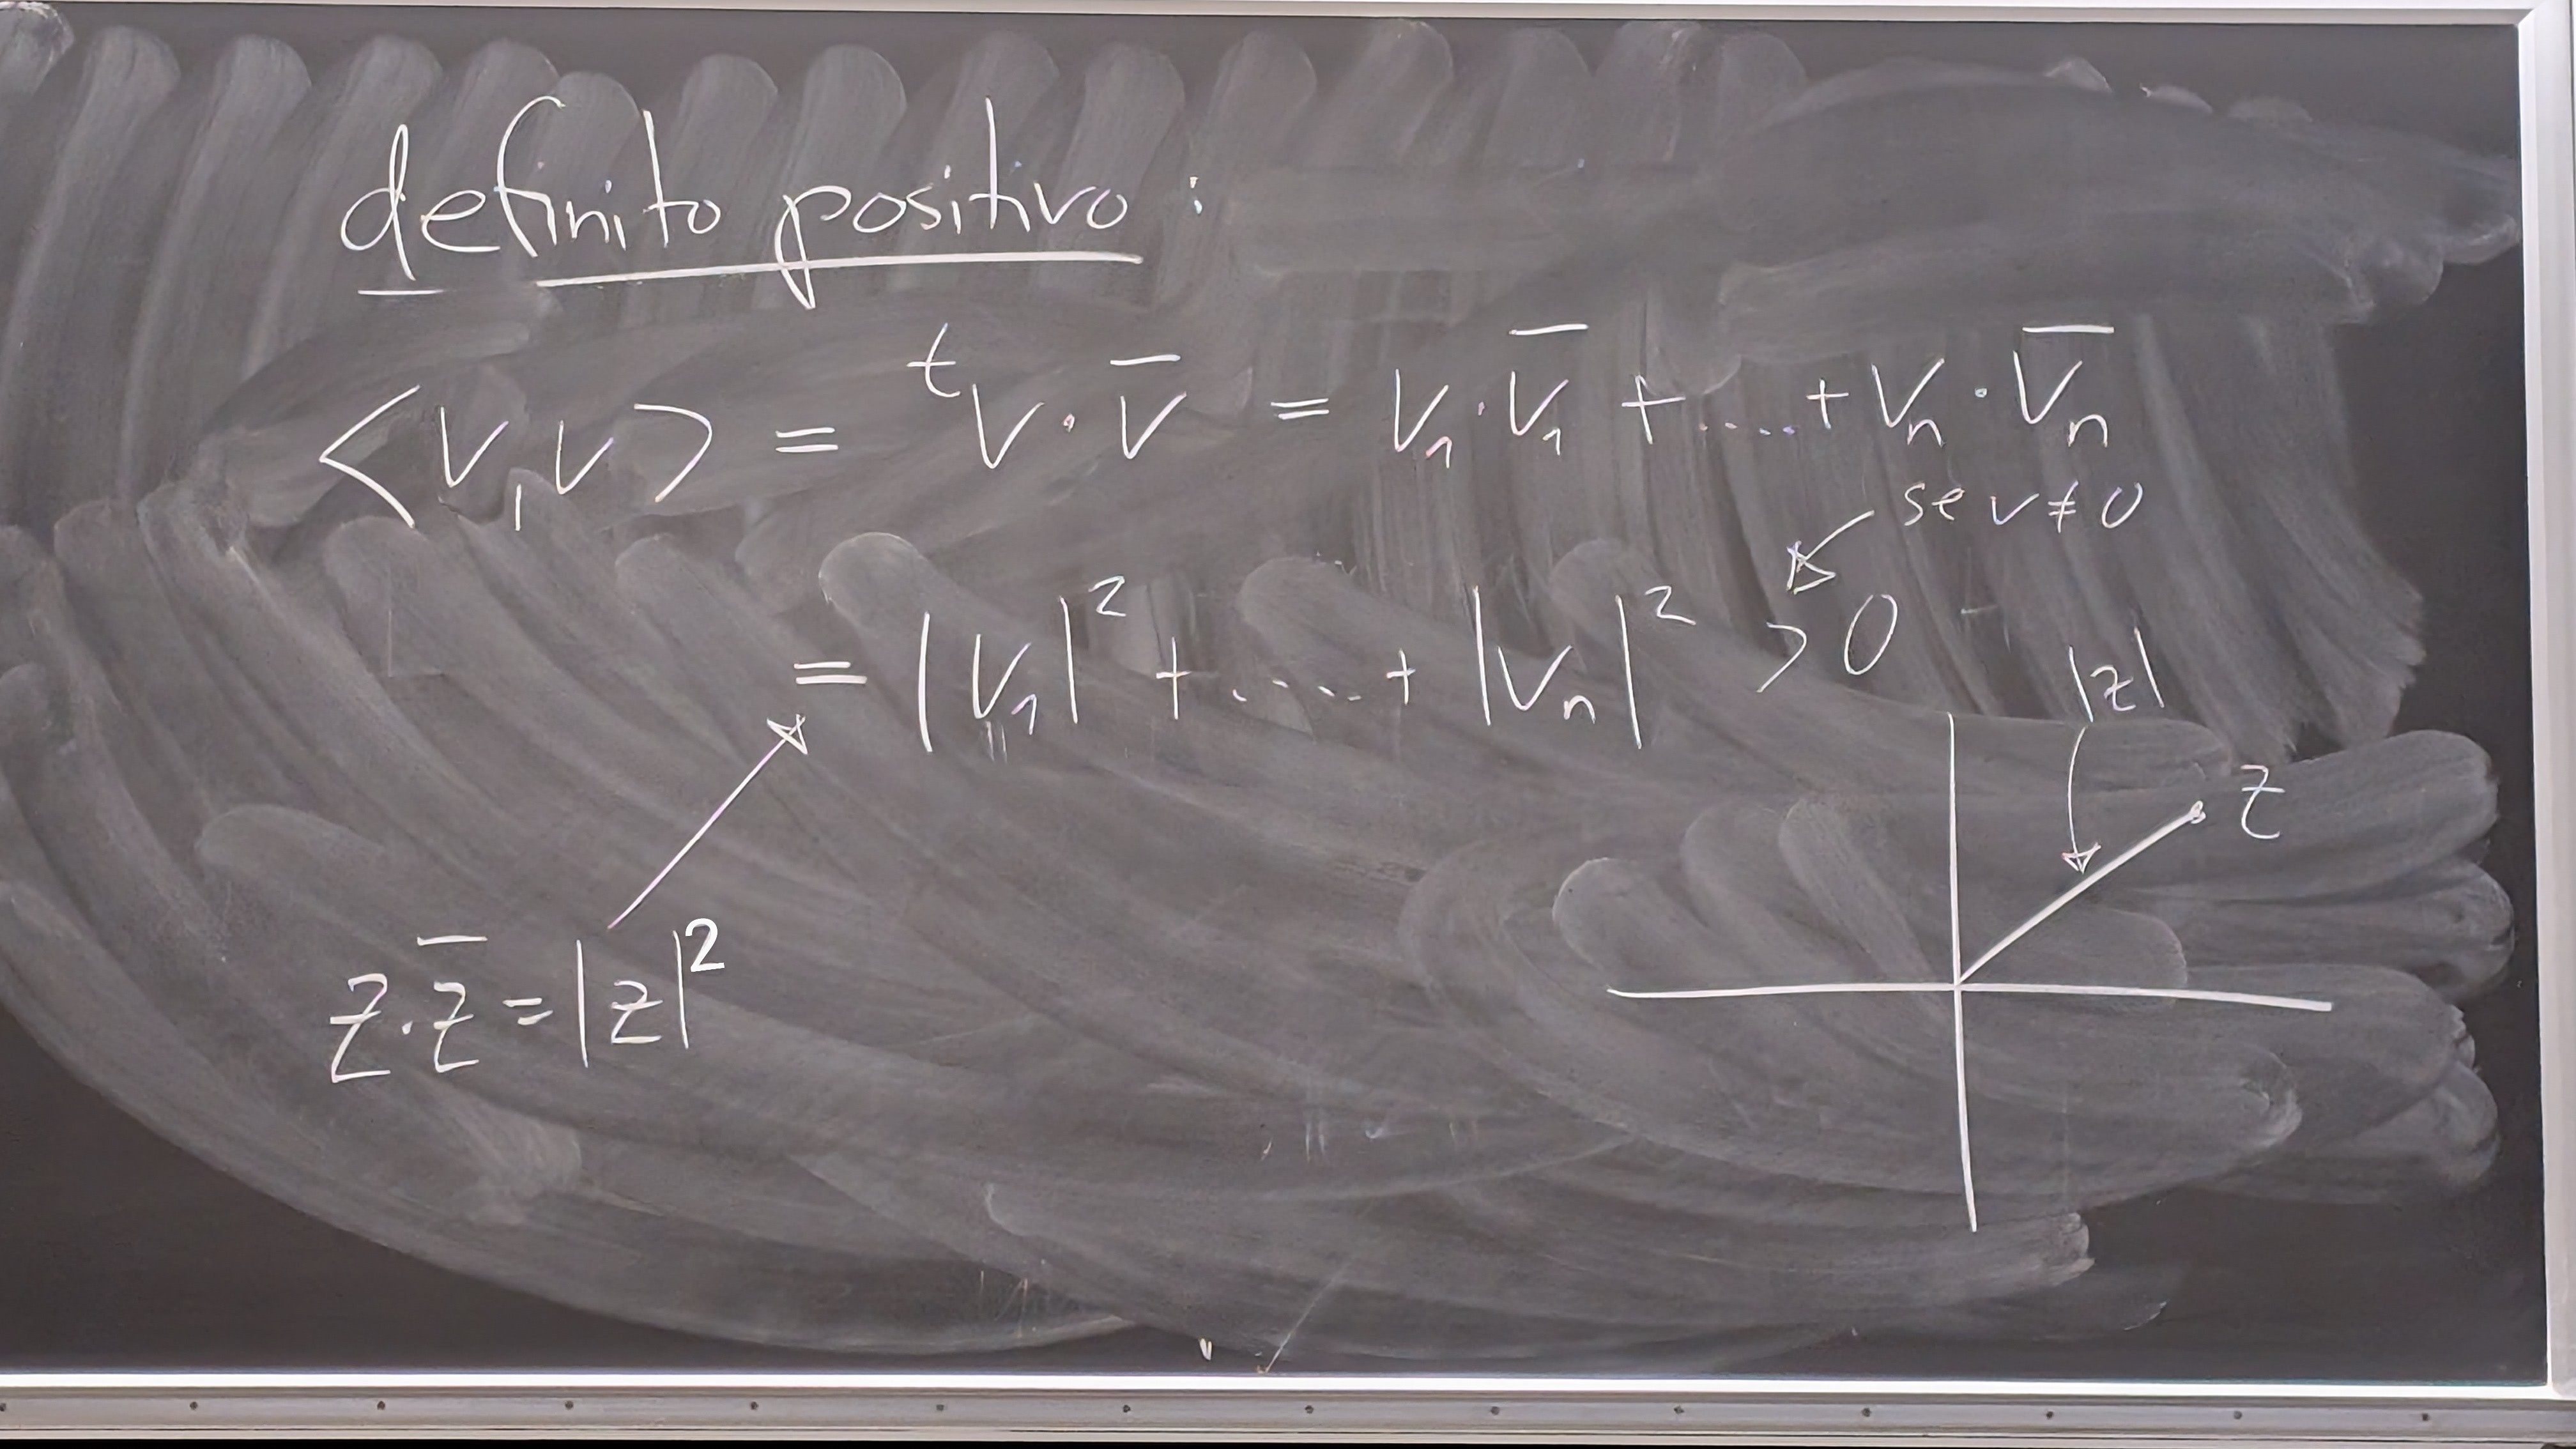 definito positivo :
<v,v> = ᵗv · v̅ = v₁ · v̅₁ + .... + vₙ · v̅ₙ
se v ≠ 0
= |v₁|² + .... + |vₙ|² > 0
|z|
z
z · z̅ = |z|²